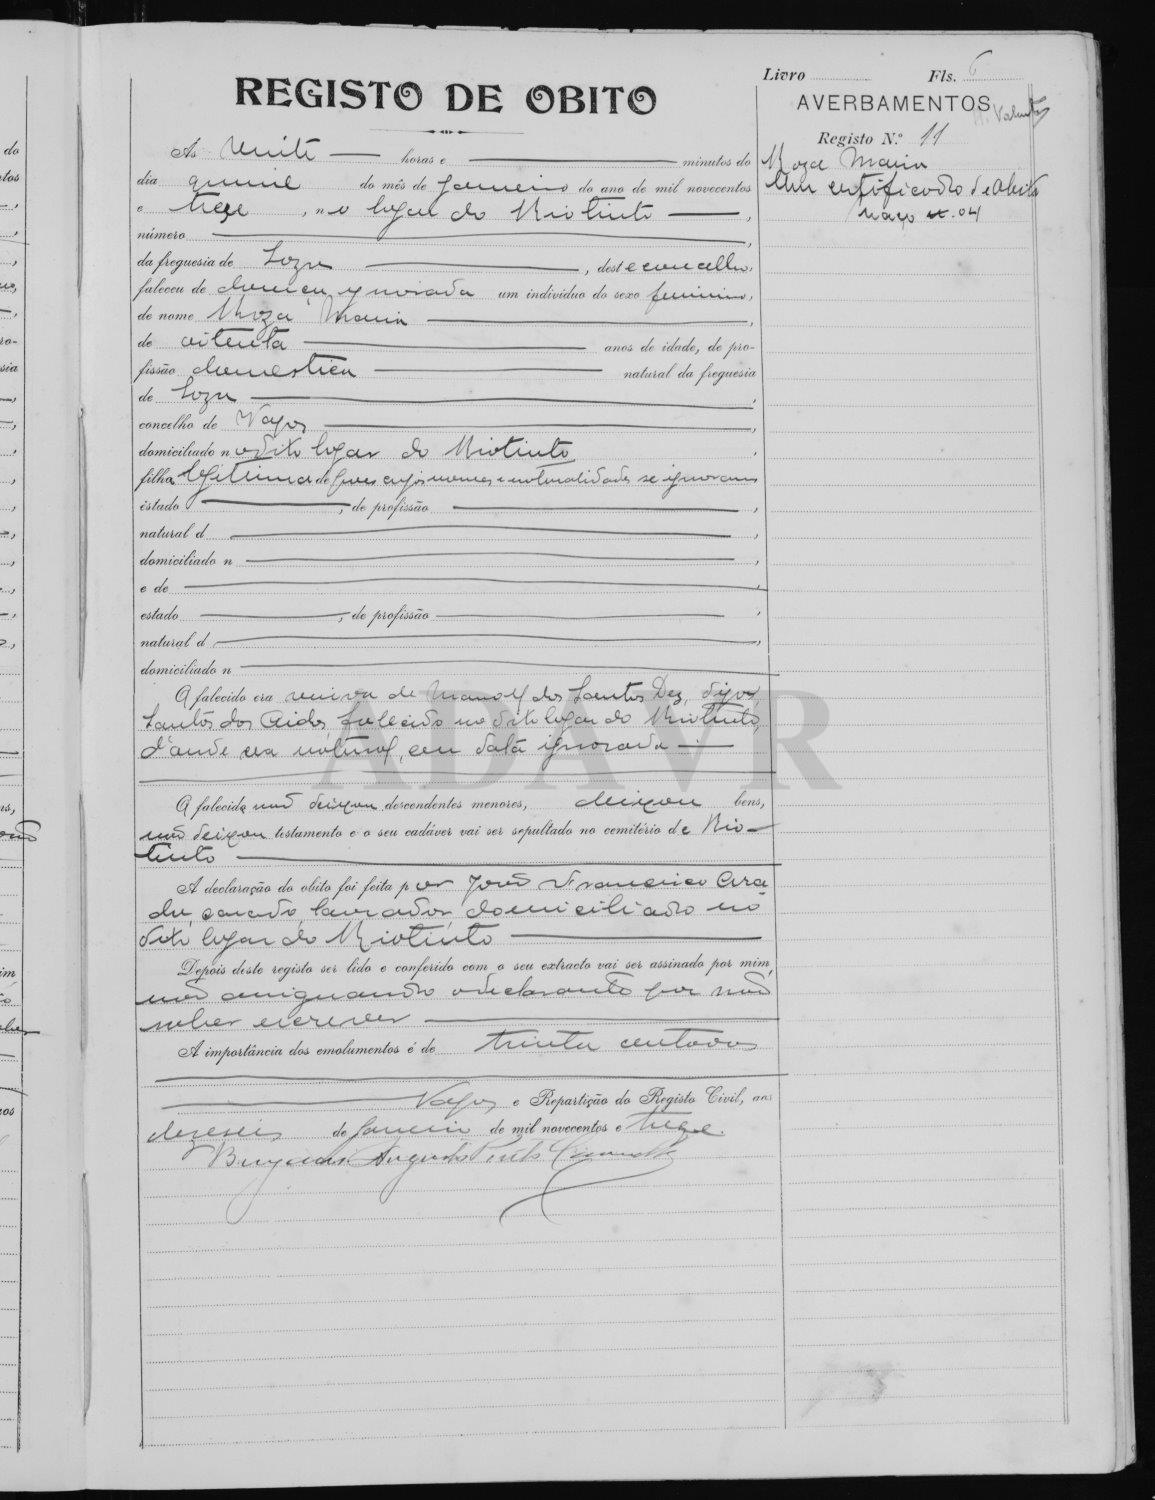 Livro Fls. 6
REGISTO DE OBITO
AVERBAMENTOS
Registo N.º 11
Às vinte horas e minutos do
Roza Maria
dia quinze do mês de Janeiro do ano de mil novecentos
e treze, no logar do Riotinto,
número
da freguesia de Soza, deste concelho,
faleceu de doença ignorada um individuo do sexo feminino,
de nome Roza Maria,
de oitenta anos de idade, de pro-
fissão domestica natural da freguesia
de Soza,
concelho de Vagos,
domiciliado no dito logar do Riotinto,
filha legitima de paes cujos nomes e naturalidades se ignoram
estado, de profissão,
natural d,
domiciliado n,
e de,
estado, de profissão,
natural d,
domiciliado n
A falecido era viuva de Manoel dos Santos Dez, digo,
Santos dos Aidos, falecido no dito logar do Riotinto,
d'onde era natural, em data ignorada
A falecida não deixou descendentes menores, deixou bens,
não deixou testamento e o seu cadáver vai ser sepultado no cemitério de Rio-
tinto
A declaração do obito foi feita por João Francisco
casado, lavrador, domiciliado no
dito logar do Riotinto
Depois deste registo ser lido e conferido com o seu extracto vai ser assinado por mim,
não assignando o declarante por não
saber escrever
A importância dos emolumentos é de trinta centavos
Vagos e Repartição do Registo Civil, aos
dezeseis de Janeiro de mil novecentos e treze.
Augusto
ADAVR